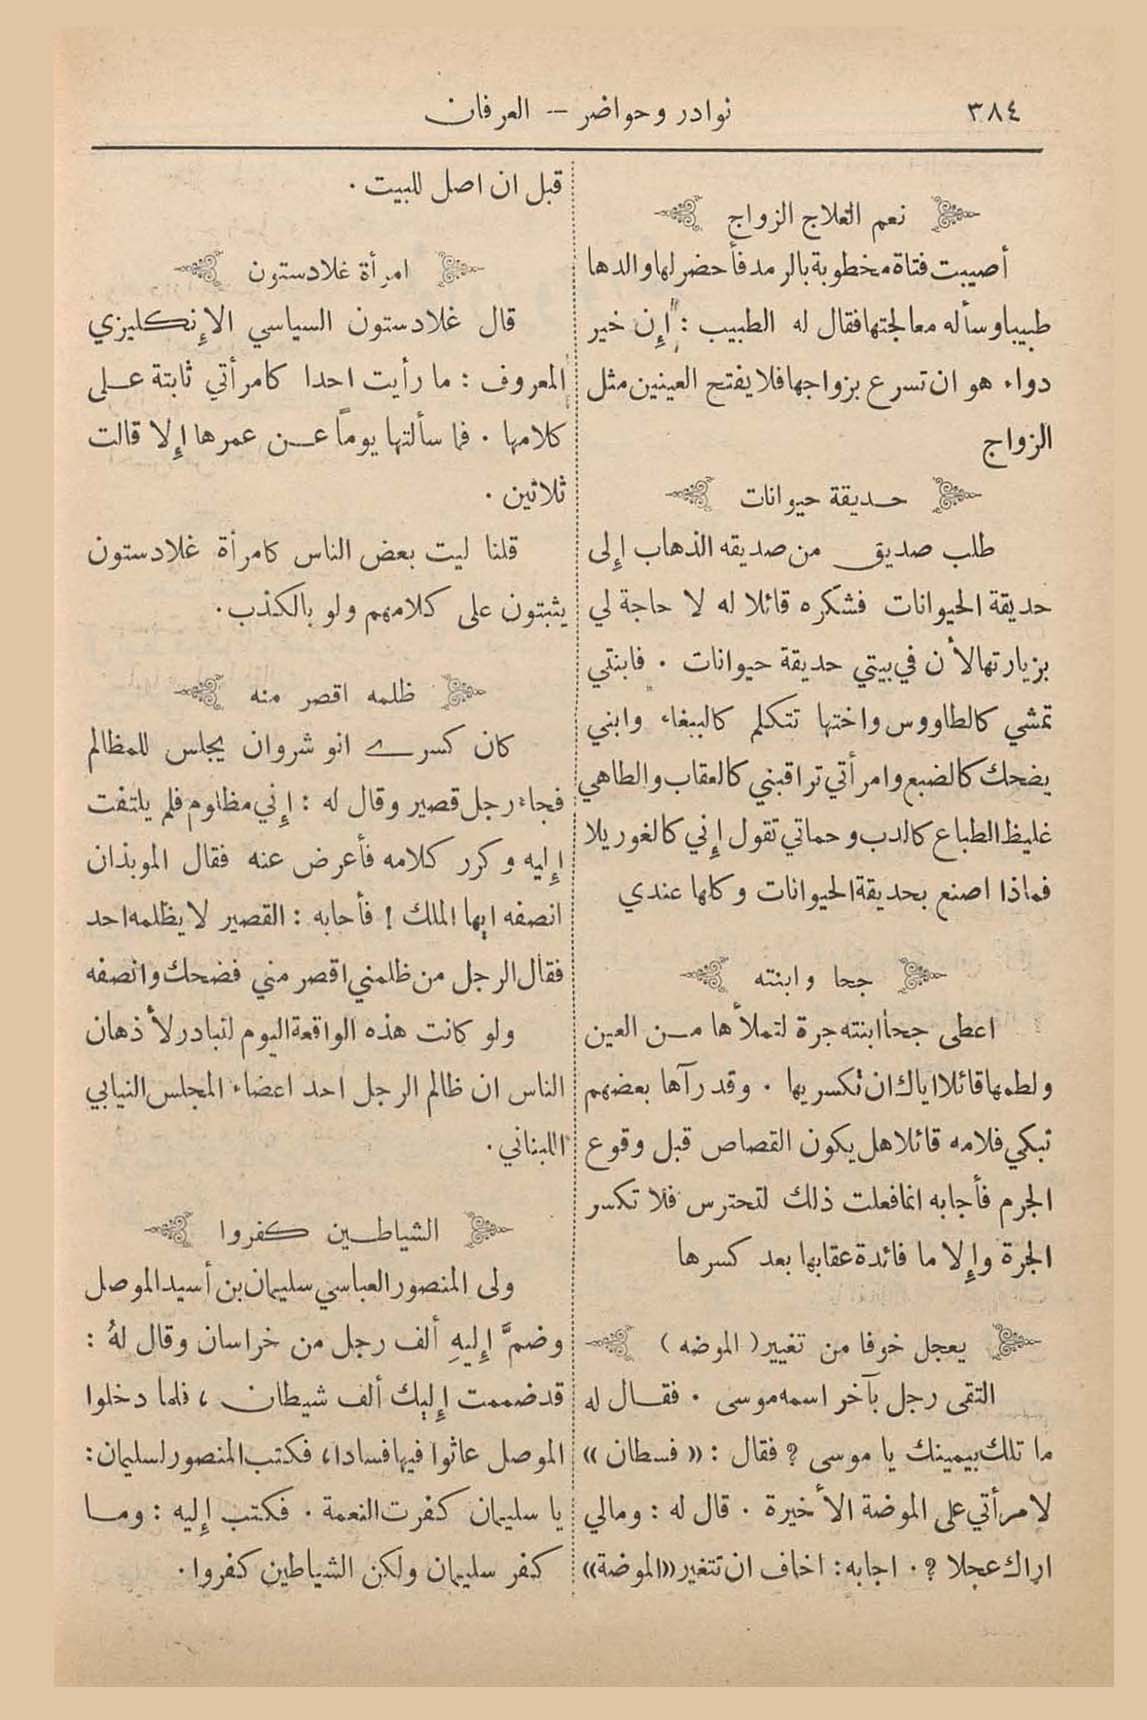 ٣٨٤
نوادر وحواضر — العرفان
نعم العلاج الزواج
أصيبت فتاة مخطوبة بالرمد فأحضر لها والدها
طبيبا وسأله معالجتها فقال له الطبيب : إن خير
دواء هو ان تسرع بزواجها فلا يفتح العينين مثل
الزواج
حديقة حيوانات
طلب صديق من صديقه الذهاب إلى
حديقة الحيوانات فشكره قائلا له لا حاجة لي
بزيارتها لأن في بيتي حديقة حيوانات . فابنتي
تمشي كالطاووس واختها تتكلم كالببغاء وابني
يضحك كالضبع وامرأتي تراقبني كالعقاب والطاهي
غليظ الطباع كالدب وحماتي تقول إني كالغوريلا
فماذا اصنع بحديقة الحيوانات وكلها عندي
جحا وابنته
اعطى جحا ابنته جرة لتملأها من العين
ولطمها قائلا اياك ان تكسريها . وقد رآها بعضهم
تبكي فلامه قائلا هل يكون القصاص قبل وقوع
الجرم فأجابه انما فعلت ذلك لتحترس فلا تكسر
الجرة وإلا ما فائدة عقابها بعد كسرها
يعجل خوفا من تغيير ( الموضه )
التقى رجل بآخر اسمه موسى . فقال له
ما تلك بيمينك يا موسى ? فقال : « فسطان »
لامرأتي على الموضة الأخيرة . قال له : ومالي
اراك عجلا ? . اجابه : اخاف ان تتغير «الموضة»
قبل ان اصل للبيت .
امرأة غلادستون
قال غلادستون السياسي الإنكليزي
المعروف : ما رأيت احدا كامرأتي ثابتة على
كلامها . فما سألتها يوماً عن عمرها إلا قالت
ثلاثين .
قلنا ليت بعض الناس كامرأة غلادستون
يثبتون على كلامهم ولو بالكذب .
ظلمه اقصر منه
كان كسرى انو شروان يجلس للمظالم
فجاء رجل قصير وقال له : إني مظلوم فلم يلتفت
إليه وكرر كلامه فأعرض عنه فقال الموبذان
انصفه ايها الملك ! فأجابه : القصير لا يظلمه احد
فقال الرجل من ظلمني اقصر مني فضحك وانصفه
ولو كانت هذه الواقعة اليوم لتبادر لأذهان
الناس ان ظالم الرجل احد اعضاء المجلس النيابي
اللبناني .
الشياطين كفروا
ولى المنصور العباسي سليمان بن أسيد الموصل
وضمَّ إليهِ ألف رجل من خراسان وقال لهُ :
قد ضممت إليك ألف شيطان ، فلما دخلوا
الموصل عاثوا فيها فسادا ، فكتب المنصور لسليمان :
يا سليمان كفرت النعمة . فكتب إليه : وما
كفر سليمان ولكن الشياطين كفروا .